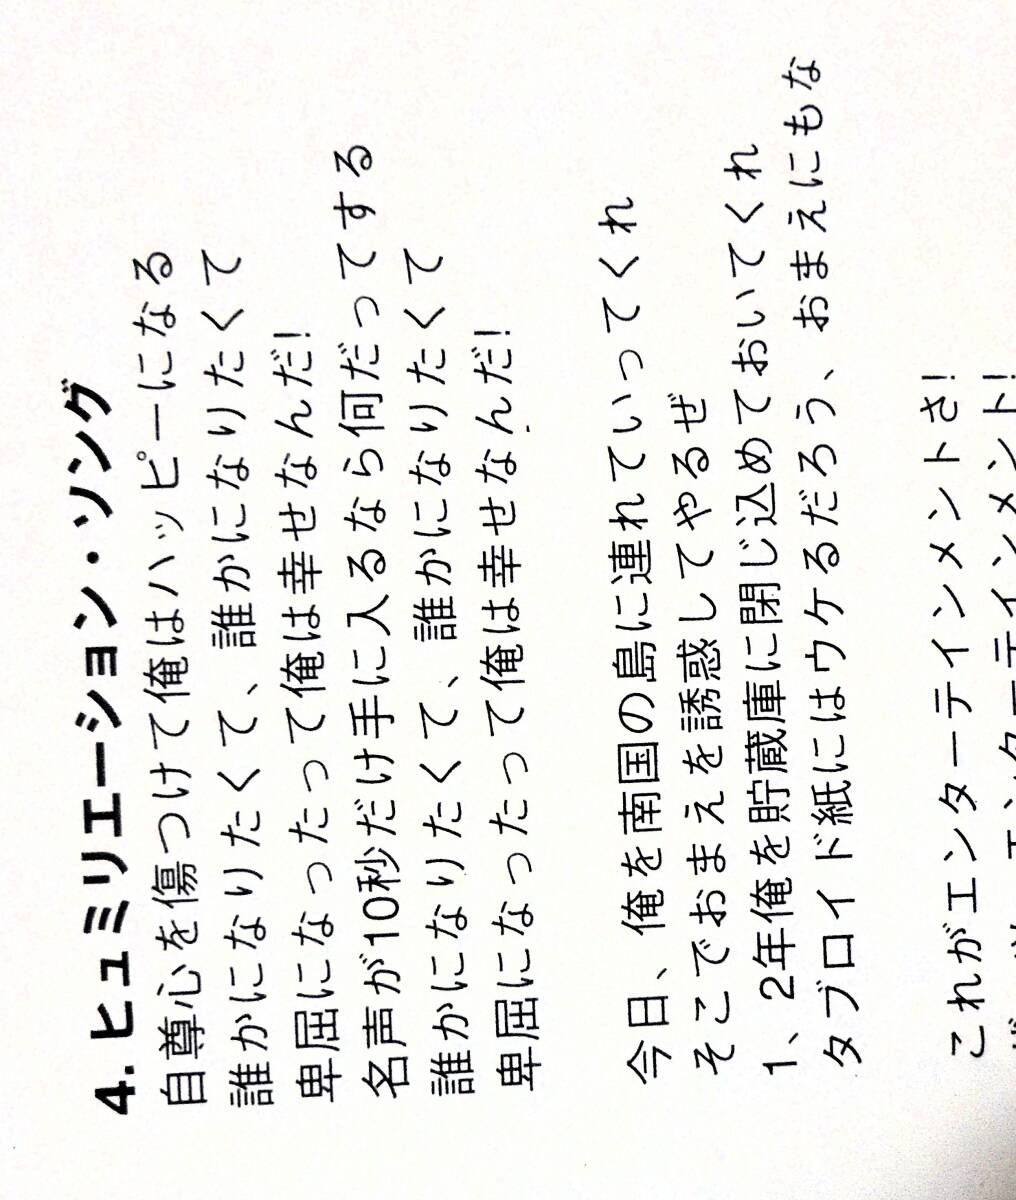 4. ヒュミリエーション・ソング
自尊心を傷つけて俺はハッピーになる
誰かになりたくて、誰かになりたくて
卑屈になったって俺は幸せなんだ!
名声が10秒だけ手に入るなら何だってする
誰かになりたくて、誰かになりたくて
卑屈になったって俺は幸せなんだ!
今日、俺を南国の島に連れていってくれ
そこでおまえを誘惑してやるぜ
1、2年俺を貯蔵庫に閉じ込めておいてくれ
タブロイド紙にはウケるだろう、おまえにもな
これがエンターテインメントさ!
エンターテインメント!